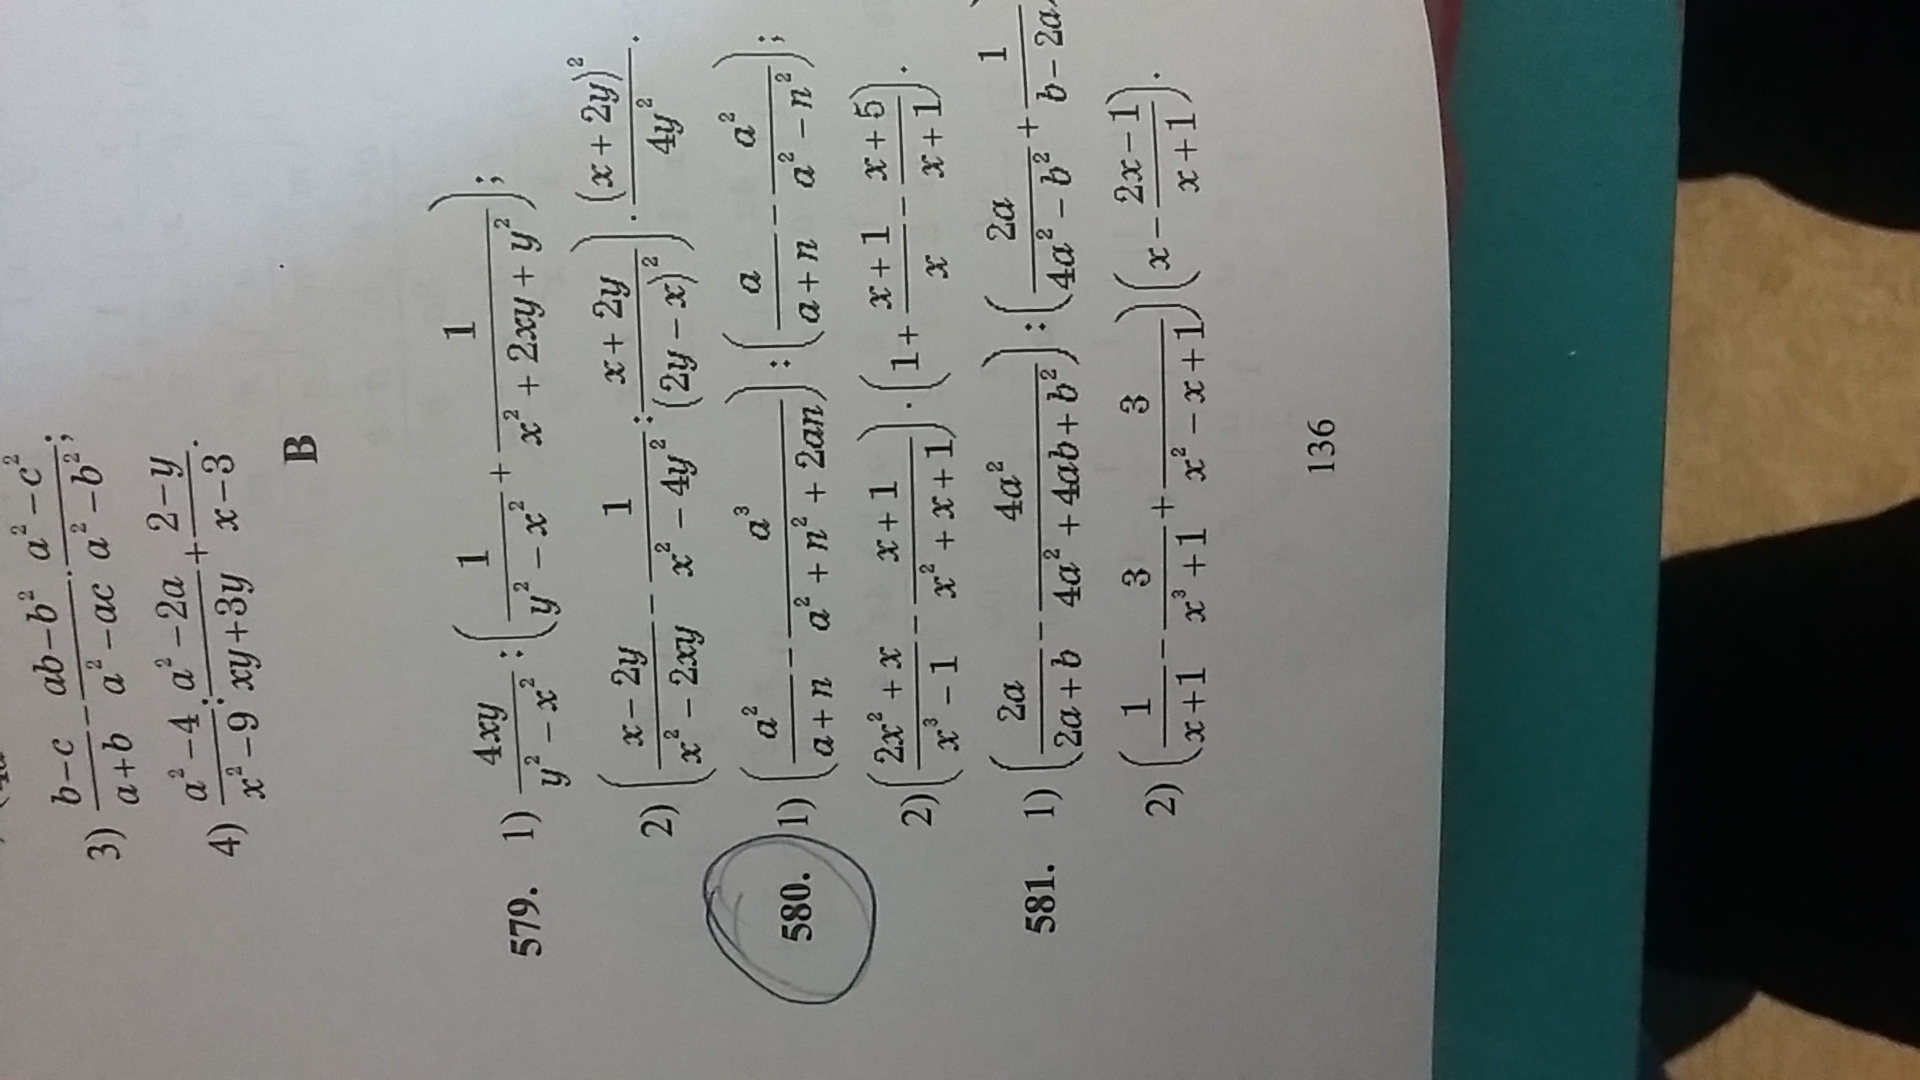 3) \frac{b-c}{a+b} - \frac{ab-b^2}{a^2-ac} \cdot \frac{a^2-c^2}{a^2-b^2};
4) \frac{a^2-4}{x^2-9} : \frac{a^2-2a}{xy+3y} + \frac{2-y}{x-3}.
B
579. 1) \frac{4xy}{y^2-x^2} : \left(\frac{1}{y^2-x^2} + \frac{1}{x^2+2xy+y^2}\right);
2) \left(\frac{x-2y}{x^2-2xy} - \frac{1}{x^2-4y^2} : \frac{x+2y}{(2y-x)^2}\right) \cdot \frac{(x+2y)^2}{4y^2}.
580. 1) \left(\frac{a^2}{a+n} - \frac{a^3}{a^2+n^2+2an}\right) : \left(\frac{a}{a+n} - \frac{a^2}{a^2-n^2}\right);
2) \left(\frac{2x^2+x}{x^3-1} - \frac{x+1}{x^2+x+1}\right) \cdot \left(1 + \frac{x+1}{x} - \frac{x+5}{x+1}\right).
581. 1) \left(\frac{2a}{2a+b} - \frac{4a^2}{4a^2+4ab+b^2}\right) : \left(\frac{2a}{4a^2-b^2} + \frac{1}{b-2a}
2) \left(\frac{1}{x+1} - \frac{3}{x^3+1} + \frac{3}{x^2-x+1}\right)\left(x - \frac{2x-1}{x+1}\right).
136